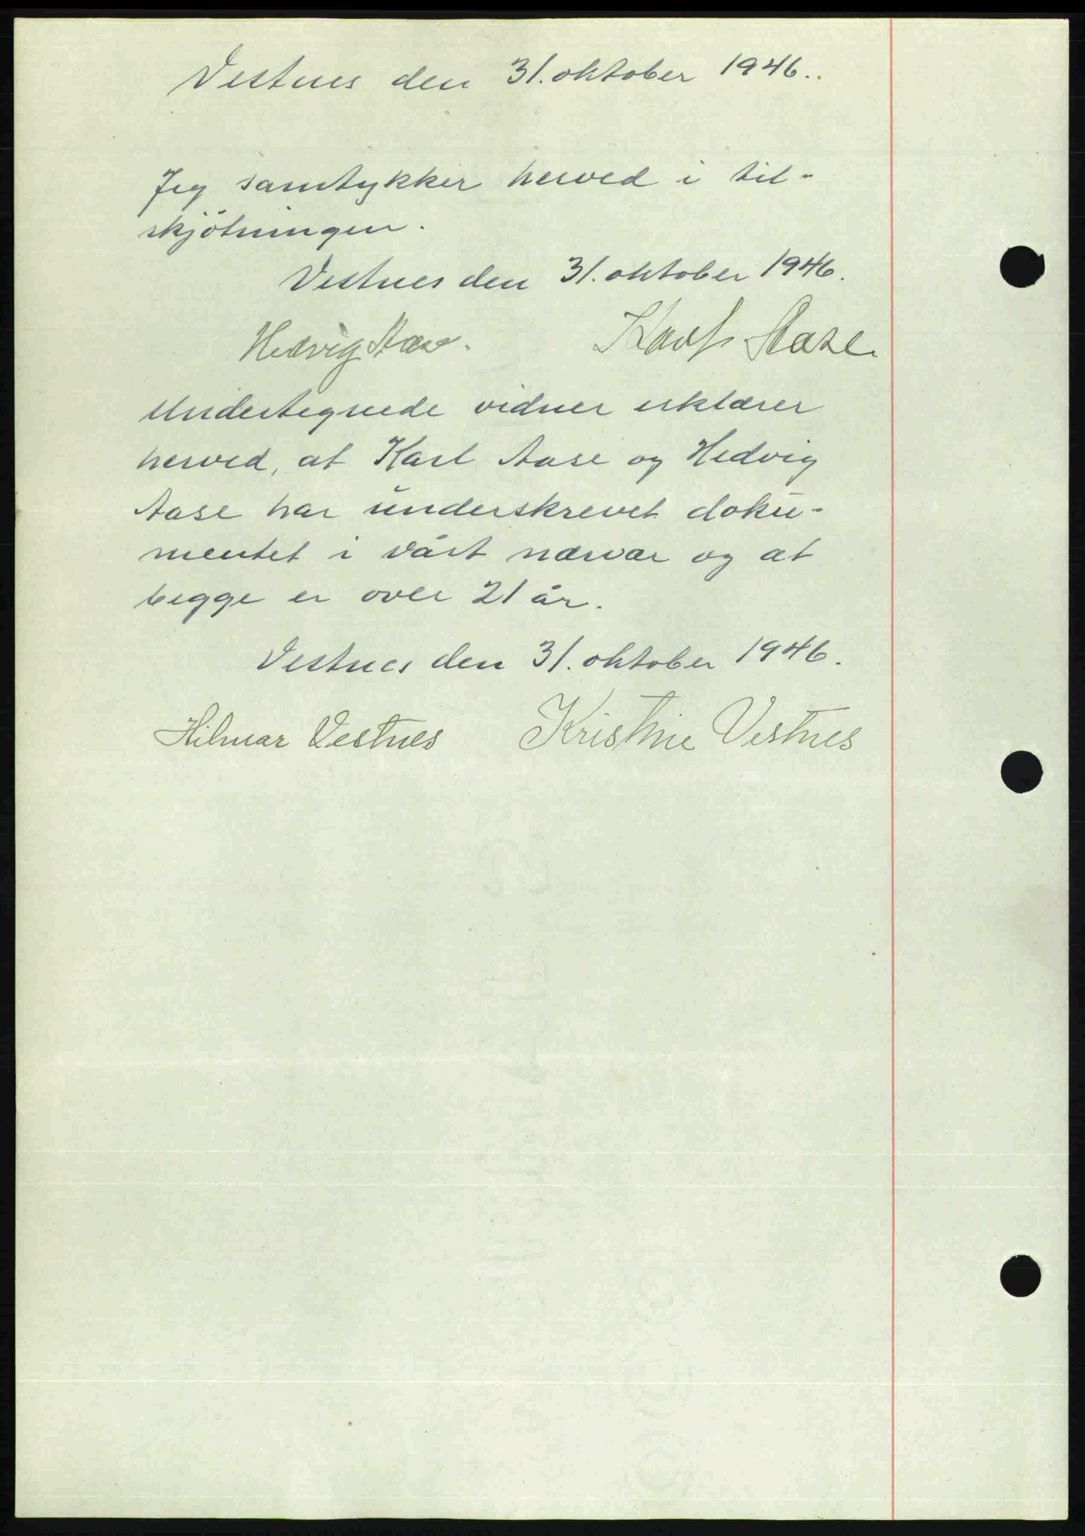 Vestnes den 31. oktober 1946.
Jeg samtykker herved i til-
skjötningen.
Vestnes den 31. oktober 1946.
Hedvig Aase. Karl Aase.
Undertegnede vidner erklærer
herved, at Karl Aase og Hedvig
Aase har underskrevet doku-
mentet i vårt nærvær og at
begge er over 21 år.
Vestnes den 31. oktober 1946.
Hilmar Vestnes Kristine Vestnes